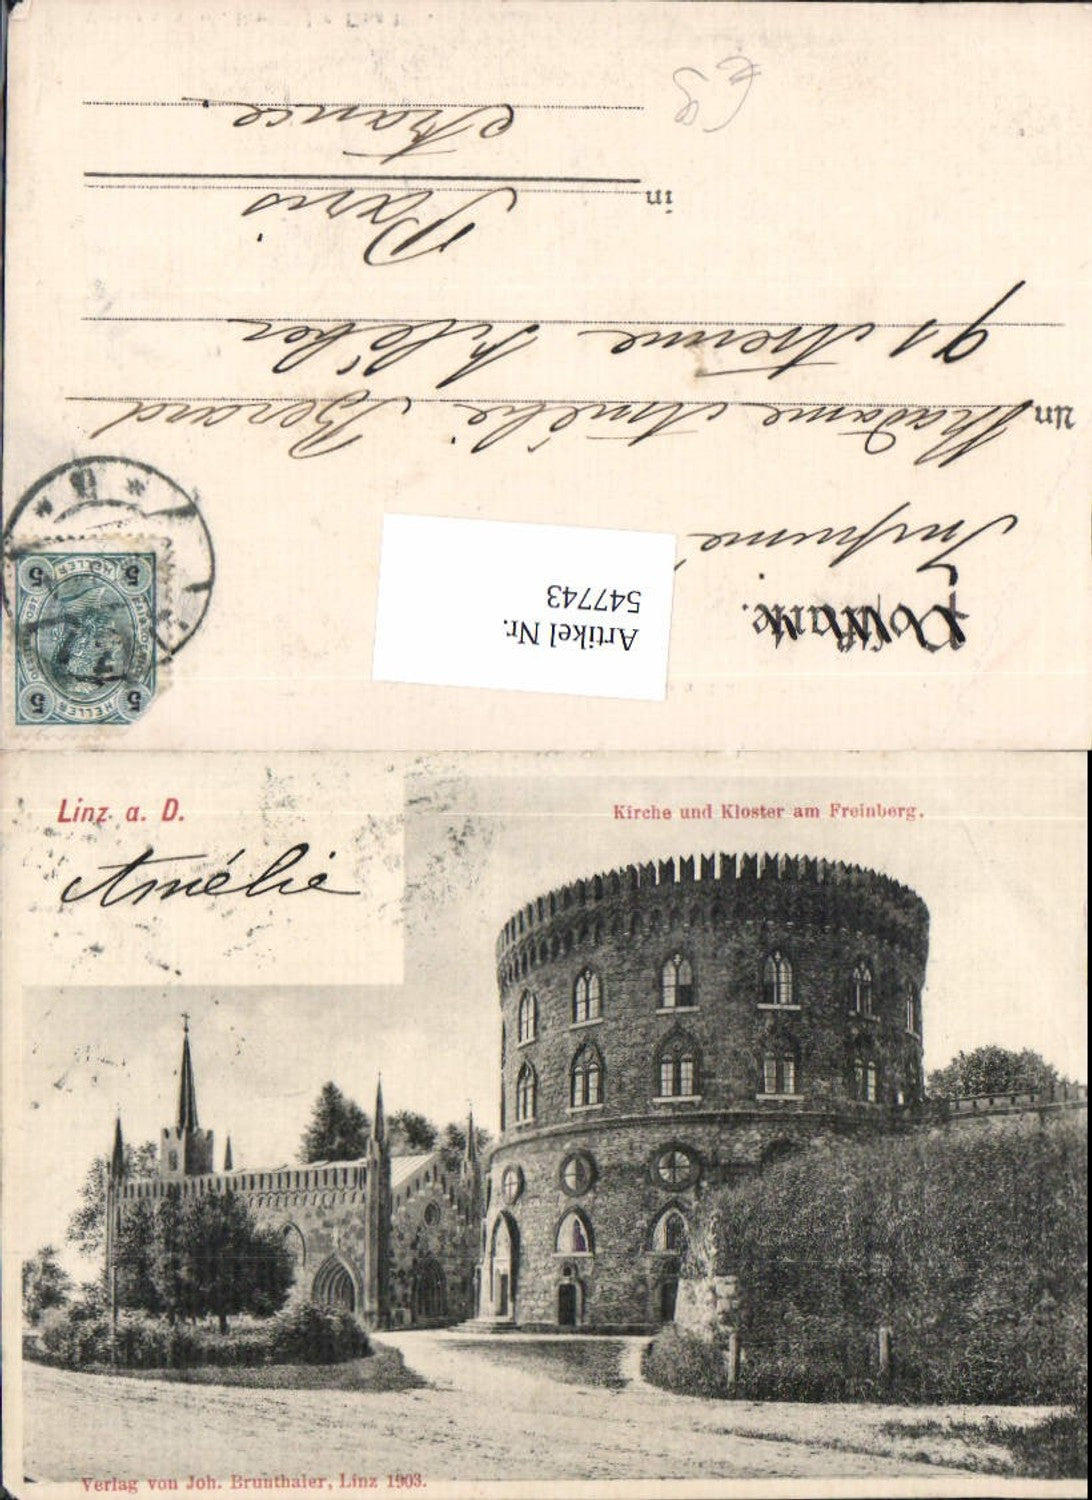 Postkarte.
Imprimé
Artikel Nr.
547743
An Madame Amélie Berard
91 Avenue Kléber
in Paris
France
63
5 5
HELLER HELLER
5 5
Linz a. D.
Amélie
Kirche und Kloster am Freinberg.
Verlag von Joh. Brunthaler, Linz 1903.